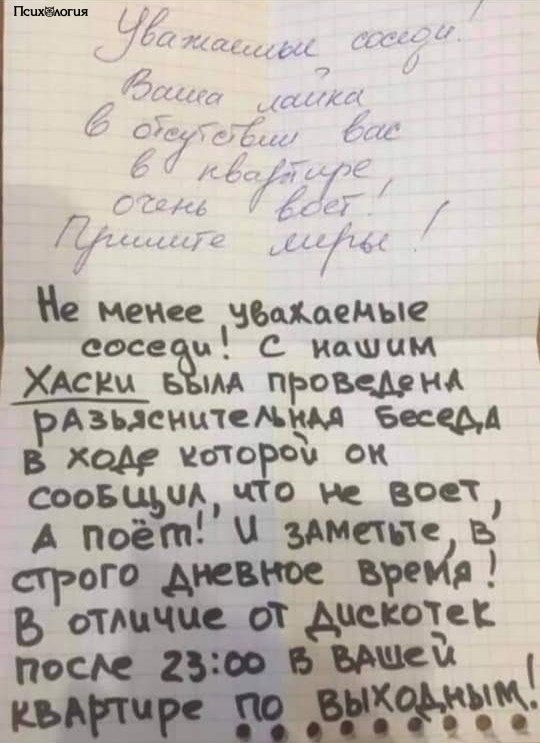 Психология
Уважаемые соседи!
Ваша лайка
в отсутствии вас
в квартире,
очень воет!
Примите меры!
Не менее уважаемые
соседи! С нашим
ХАСКИ БЫЛА проведенА
рАзъяснительнАя БеседА
в ходе которой он
сооБщил, что не воет,
А поёт! И зАметьте, в
строго дневное время!
В отличие от дискотек
после 23:00 в вАшей
квАртире по выходным!